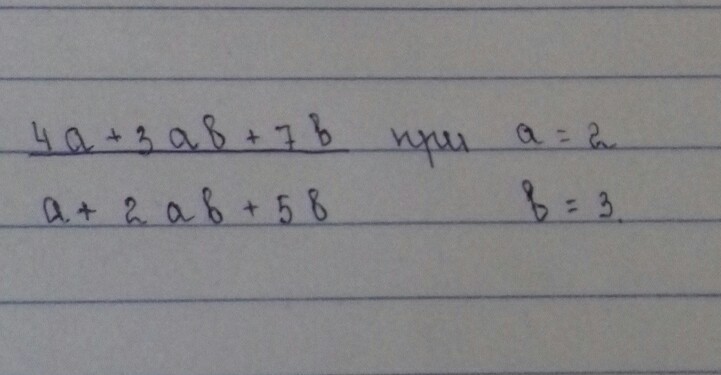 4a + 3ab + 7b при a = 2
a + 2ab + 5b b = 3.